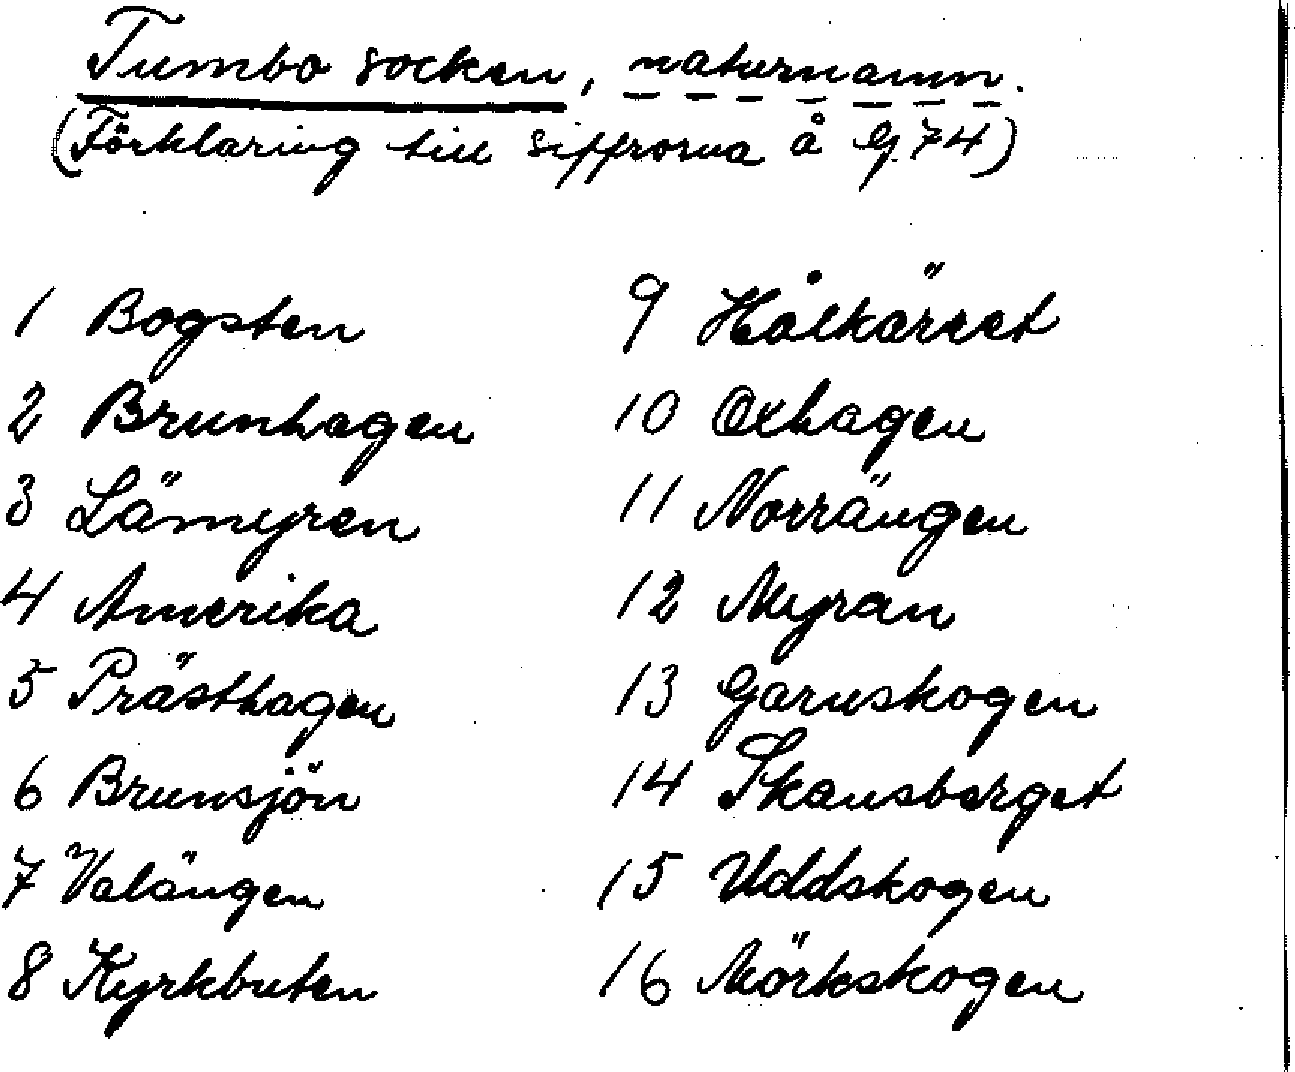 Tumbo socken, naturnamn.
(Förklaring till siffrorna å Gj. 74)
1 Bogsten
2 Brunhagen
3 Lämyren
4 Amerika
5 Prästhagen
6 Brunsjön
7 Valängen
8 Kyrkbuten
9 Hålkärret
10 Oxhagen
11 Norrängen
12 Myran
13 Garnskogen
14 Skansberget
15 Uddskogen
16 Mörkskogen